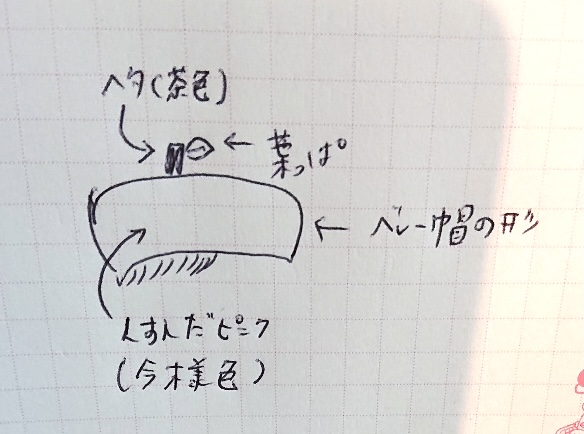 ヘタ(茶色)
葉っぱ
ベレー帽の形
くすんだピンク
(今様色)